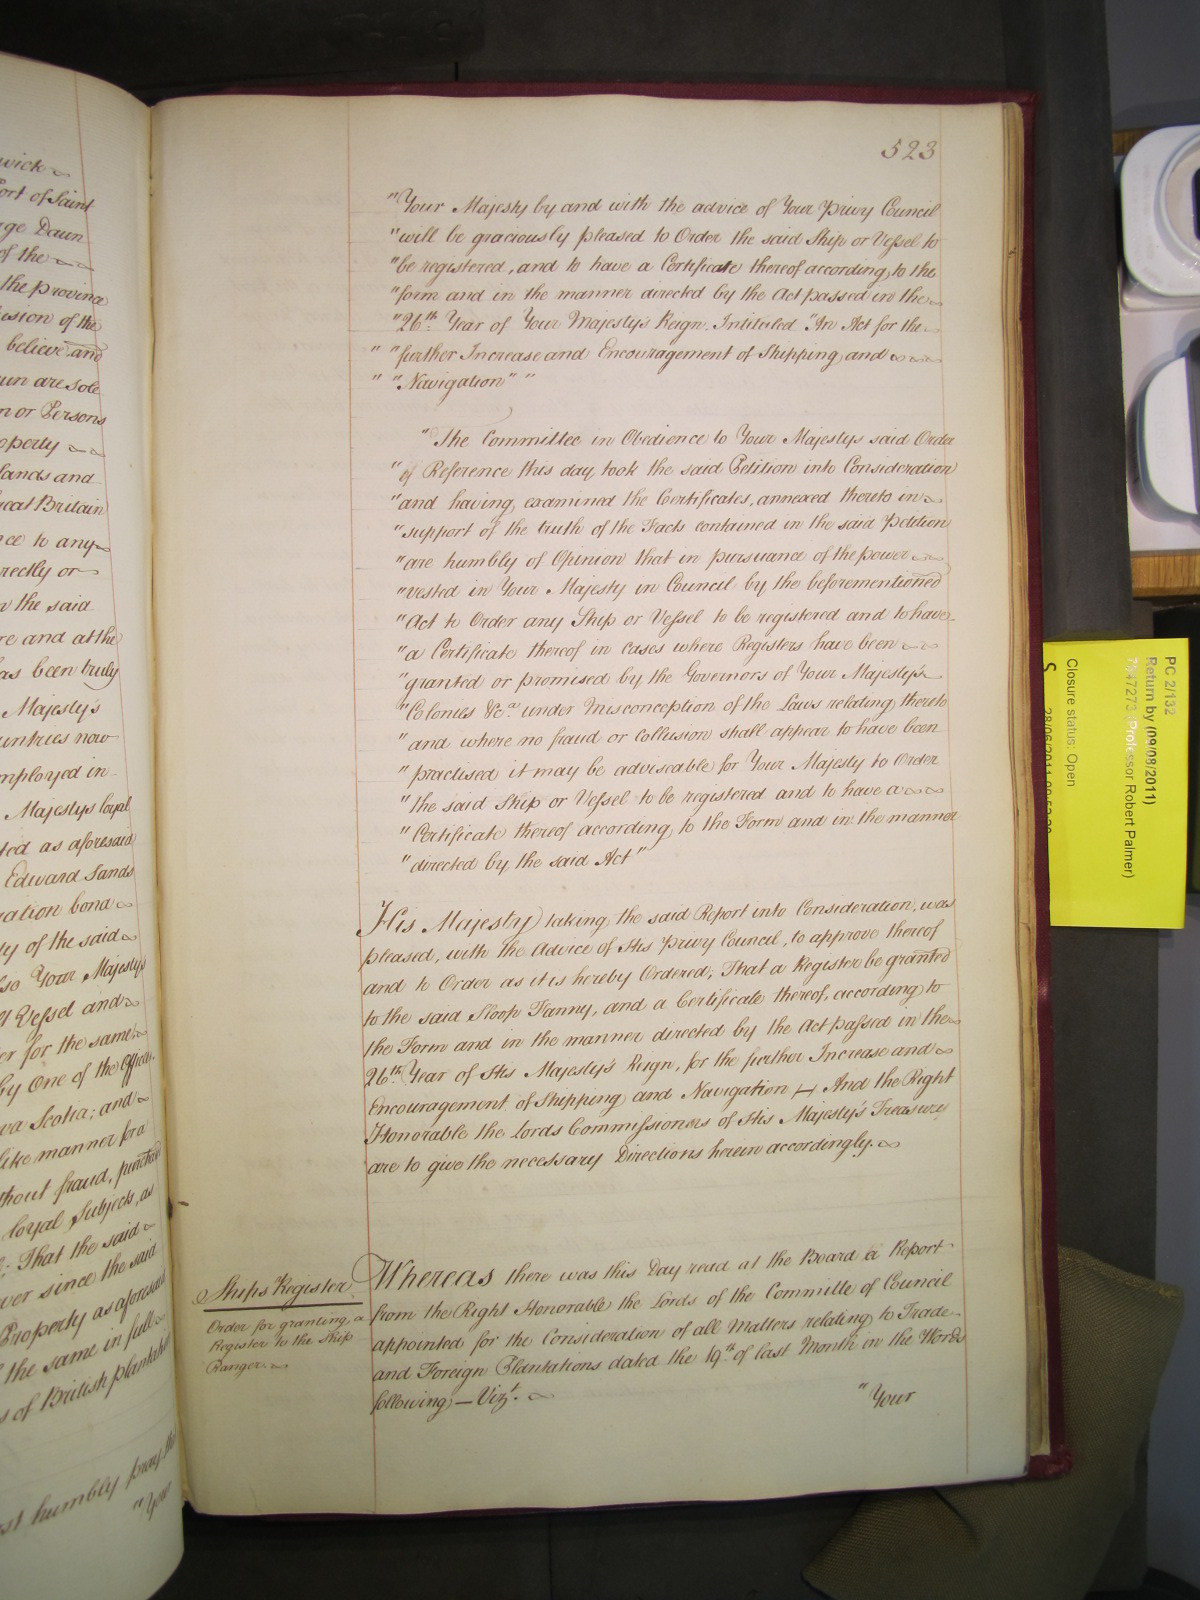 wick
ort of Saint
ge Daun
of the
the province
ission of the
believe and
un are sole
n or Persons
operty
lands and
reat Britain
ce to any
rectly or
n the said
re and at the
as been truly
Majesty's
untries now
mployed in
Majestys loyal
ted as aforesaid
Edward Sands
ration bona
ty of the said
so Your Majesty's
Vessel and
er for the same
by One of the Officers
va Scotia; and
like manner for a
thout fraud, purchased
loyal Subjects, as
That the said
ver since the said
Property as aforesaid
the same in full
s of British plantation
st humbly pray that
"Your
523
"Your Majesty by and with the advice of Your Privy Council
"will be graciously pleased to Order the said Ship or Vessel to
"be registered, and to have a Certificate thereof according to the
"form and in the manner directed by the Act passed in the
"26th. Year of Your Majesty's Reign. Intituled "An Act for the
" "further Increase and Encouragement of Shipping and
" "Navigation" "
"The Committee in Obedience to Your Majestys said Order
"of Reference this day took the said Petition into Consideration
"and having examined the Certificates, annexed thereto in
"support of the truth of the Facts contained in the said Petition
"are humbly of Opinion that in pursuance of the power
"vested in Your Majesty in Council by the beforementioned
"Act to Order any Ship or Vessel to be registered and to have
"a Certificate thereof in cases where Registers have been
"granted or promised by the Governors of Your Majesty's
"Colonies &c.a under misconception of the Laws relating thereto
"and where no fraud or Collusion shall appear to have been
"practised it may be adviseable for Your Majesty to Order
"the said Ship or Vessel to be registered and to have a
"Certificate thereof according to the Form and in the manner
"directed by the said Act"
His Majesty taking the said Report into Consideration, was
pleased, with the Advice of His Privy Council, to approve thereof
and to Order as it is hereby Ordered; That a Register be granted
to the said Sloop Fanny, and a Certificate thereof, according to
the Form and in the manner directed by the Act passed in the
26th. Year of His Majesty's Reign, for the further Increase and
Encouragement of Shipping and Navigation — And the Right
Honorable the Lords Commissioners of His Majesty's Treasury
are to give the necessary Directions herein accordingly.
Ships Register
Order for granting a
Register to the Ship
Ranger.
Whereas there was this Day read at the Board a Report
from the Right Honorable the Lords of the Committe of Council
appointed for the Consideration of all Matters relating to Trade
and Foreign Plantations dated the 19th. of last Month in the Words
following — Vizt.
"Your
PC 2/132
Return by (09/08/2011)
7347273 (Professor Robert Palmer)
Closure status: Open
S